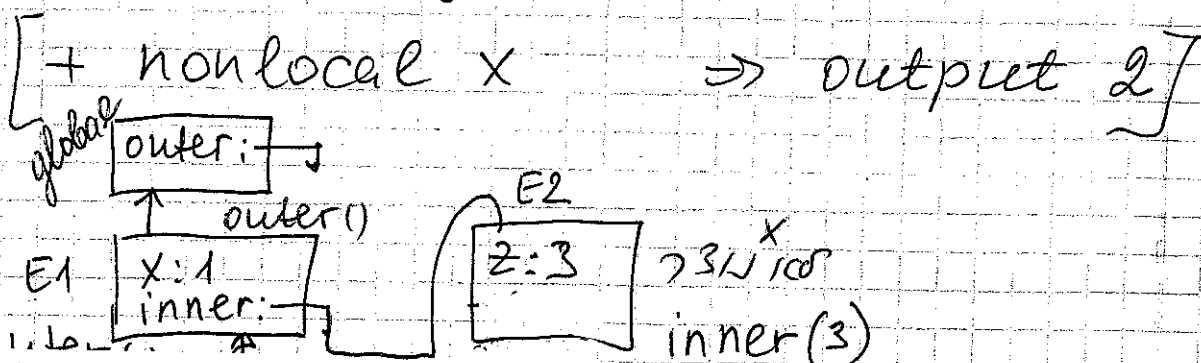 [+ nonlocal x => output 2]
global
outer:
outer()
E2
E1
x:1
z:3
x
inner:
inner(3)